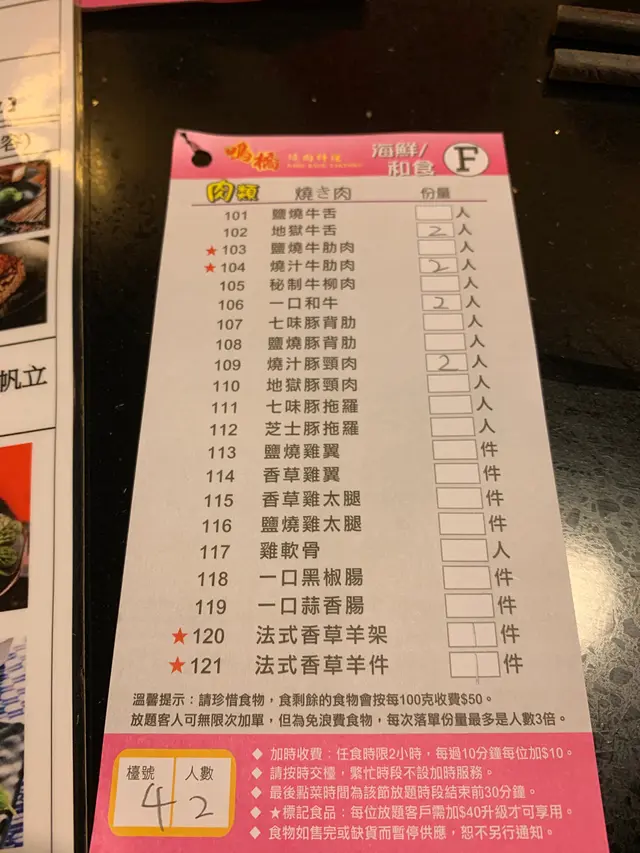 容)
帆立
鳴橘 燒肉料理
海鮮/
和食 F
肉類 燒き肉 份量
101 鹽燒牛舌 人
102 地獄牛舌 2 人
★ 103 鹽燒牛肋肉 人
★ 104 燒汁牛肋肉 2 人
105 秘制牛柳肉 人
106 一口和牛 2 人
107 七味豚背肋 人
108 鹽燒豚背肋 人
109 燒汁豚頸肉 2 人
110 地獄豚頸肉 人
111 七味豚拖羅 人
112 芝士豚拖羅 人
113 鹽燒雞翼 件
114 香草雞翼 件
115 香草雞太腿 件
116 鹽燒雞太腿 件
117 雞軟骨 人
118 一口黑椒腸 件
119 一口蒜香腸 件
★ 120 法式香草羊架 件
★ 121 法式香草羊件 件
溫馨提示：請珍惜食物，食剩餘的食物會按每100克收費$50。
放題客人可無限次加單，但為免浪費食物，每次落單份量最多是人數3倍。
檯號 人數
4 2
◆ 加時收費：任食時限2小時，每過10分鐘每位加$10。
◆ 請按時交檯，繁忙時段不設加時服務。
◆ 最後點菜時間為該節放題時段結束前30分鐘。
◆ ★標記食品：每位放題客戶需加$40升級才可享用。
◆ 食物如售完或缺貨而暫停供應，恕不另行通知。